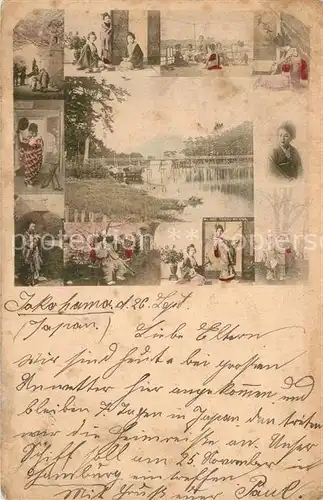 Jokohama, d. 26. Sept.
(Japan.) Liebe Eltern
Wir sind heute bei grossen
Unwetter hier angekommen und
bleiben 7 Tagen in Japan den
wir die Heimreise an. Unser
Schiff soll am 25. November in
Hamburg ein treffen
Mit Gruß euer Paul.